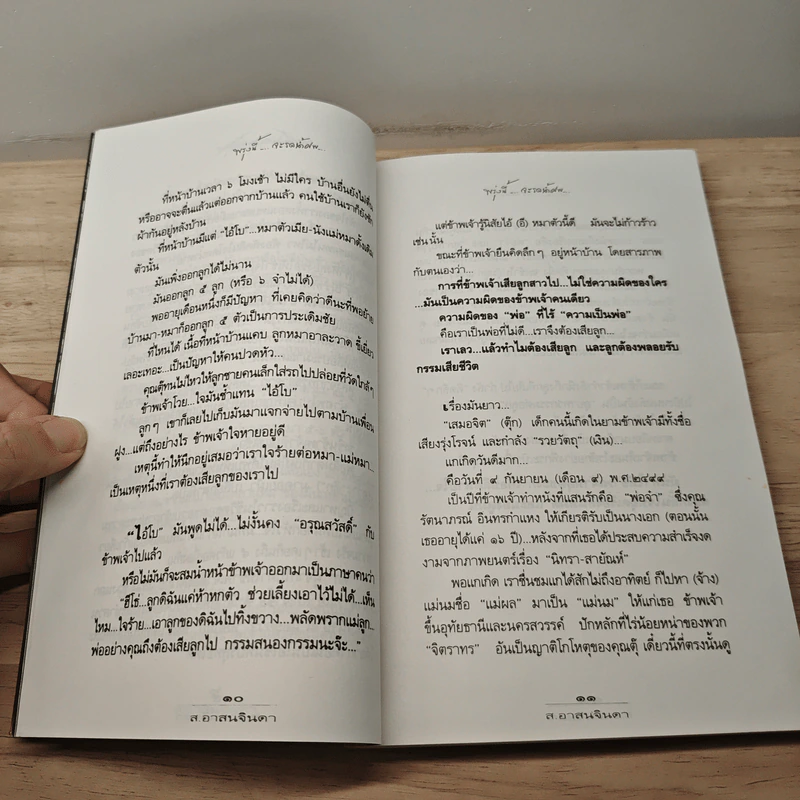 พรุ่งนี้...จะรดน้ำศพ...
ที่หน้าบ้านเวลา ๖ โมงเช้า ไม่มีใคร บ้านอื่นยังไม่ตื่น
หรืออาจจะตื่นแล้วแต่ออกจากบ้านแล้ว คนใช้บ้านเราก็ยังซัก
ผ้ากันอยู่หลังบ้าน
ที่หน้าบ้านมีแต่ "ไอ้โบ"...หมาตัวเมีย-นังแม่หมาตั้งเดิม
ตัวนั้น
มันเพิ่งออกลูกได้ไม่นาน
มันออกลูก ๕ ลูก (หรือ ๖ จำไม่ได้)
พออายุเดือนหนึ่งก็มีปัญหา ที่เคยคิดว่าดีนะที่พอย้าย
บ้านมา-หมาก็ออกลูก ๕ ตัวเป็นการประเดิมชัย
ที่ไหนได้ เนื้อที่หน้าบ้านแคบ ลูกหมาอาละวาด ขี้เยี่ยว
เลอะเทอะ...เป็นปัญหาให้คนปวดหัว...
คุณตุ๊ทนไม่ไหวให้ลูกชายคนเล็กใส่รถไปปล่อยที่วัดใกล้ๆ
ข้าพเจ้าโวย...ใจมันช้ำแทน "ไอ้โบ"
ลูกๆ เขาก็เลยไปเก็บมันมาแจกจ่ายไปตามบ้านเพื่อน
ฝูง...แต่ถึงอย่างไร ข้าพเจ้าใจหายอยู่ดี
เหตุนี้ทำให้นึกอยู่เสมอว่าเราใจร้ายต่อหมา-แม่หมา...
เป็นเหตุหนึ่งที่เราต้องเสียลูกของเราไป
"ไอ้โบ" มันพูดได้...ไม่งั้นคง "อรุณสวัสดิ์" กับ
ข้าพเจ้าไปแล้ว
หรือไม่มันก็จะสมน้ำหน้าข้าพเจ้าออกมาเป็นภาษาคนว่า
"ฮึโธ่...ลูกดิฉันแค่ห้าหกตัว ช่วยเลี้ยงเอาไว้ไม่ได้...เห็น
ไหม...ใจร้าย...เอาลูกของดิฉันไปทิ้งขวาง...พลัดพรากแม่ลูก...
พ่ออย่างคุณถึงต้องเสียลูกไป กรรมสนองกรรมนะจ๊ะ..."
๑๐
ส.อาสนจินดา
พรุ่งนี้...จะรดน้ำศพ...
แต่ข้าพเจ้ารู้นิสัยไอ้ (อี) หมาตัวนี้ดี มันจะไม่ก้าวร้าว
เช่นนั้น
ขณะที่ข้าพเจ้ายืนคิดลึกๆ อยู่หน้าบ้าน โดยสารภาพ
กับตนเองว่า...
การที่ข้าพเจ้าเสียลูกสาวไป...ไม่ใช่ความผิดของใคร
...มันเป็นความผิดของข้าพเจ้าคนเดียว
ความผิดของ "พ่อ" ที่ไร้ "ความเป็นพ่อ"
คือเราเป็นพ่อที่ไม่ดี...เราจึงต้องเสียลูก...
เราเลว...แล้วทำไมต้องเสียลูก และลูกต้องพลอยรับ
กรรมเสียชีวิต
เรื่องมันยาว...
"เสมอจิต" (ตุ๊ก) เด็กคนนี้เกิดในยามข้าพเจ้ามีทั้งชื่อ
เสียงรุ่งโรจน์ และกำลัง "รวยวัตถุ" (เงิน)...
แกเกิดวันดีมาก...
คือวันที่ ๙ กันยายน (เดือน ๙) พ.ศ.๒๔๙๙
เป็นปีที่ข้าพเจ้าทำหนังที่แสนรักคือ "พ่อจ๋า" ซึ่งคุณ
รัตนาภรณ์ อินทรกำแหง ให้เกียรติรับเป็นนางเอก (ตอนนั้น
เธออายุได้แค่ ๑๖ ปี)...หลังจากที่เธอได้ประสบความสำเร็จงด
งามจากภาพยนตร์เรื่อง "นิทรา-สายัณห์"
พอแกเกิด เราชื่นชมแกได้สักไม่ถึงอาทิตย์ ก็ไปหา (จ้าง)
แม่นมชื่อ "แม่ผล" มาเป็น "แม่นม" ให้แก่เธอ ข้าพเจ้า
ขึ้นอุทัยธานีและนครสวรรค์ ปักหลักที่ไร่น้อยหน่าของพวก
"จิตราทร" อันเป็นญาติโกโหตุของคุณตุ๊ เดี๋ยวนี้ที่ตรงนั้นดู
๑๑
ส.อาสนจินดา